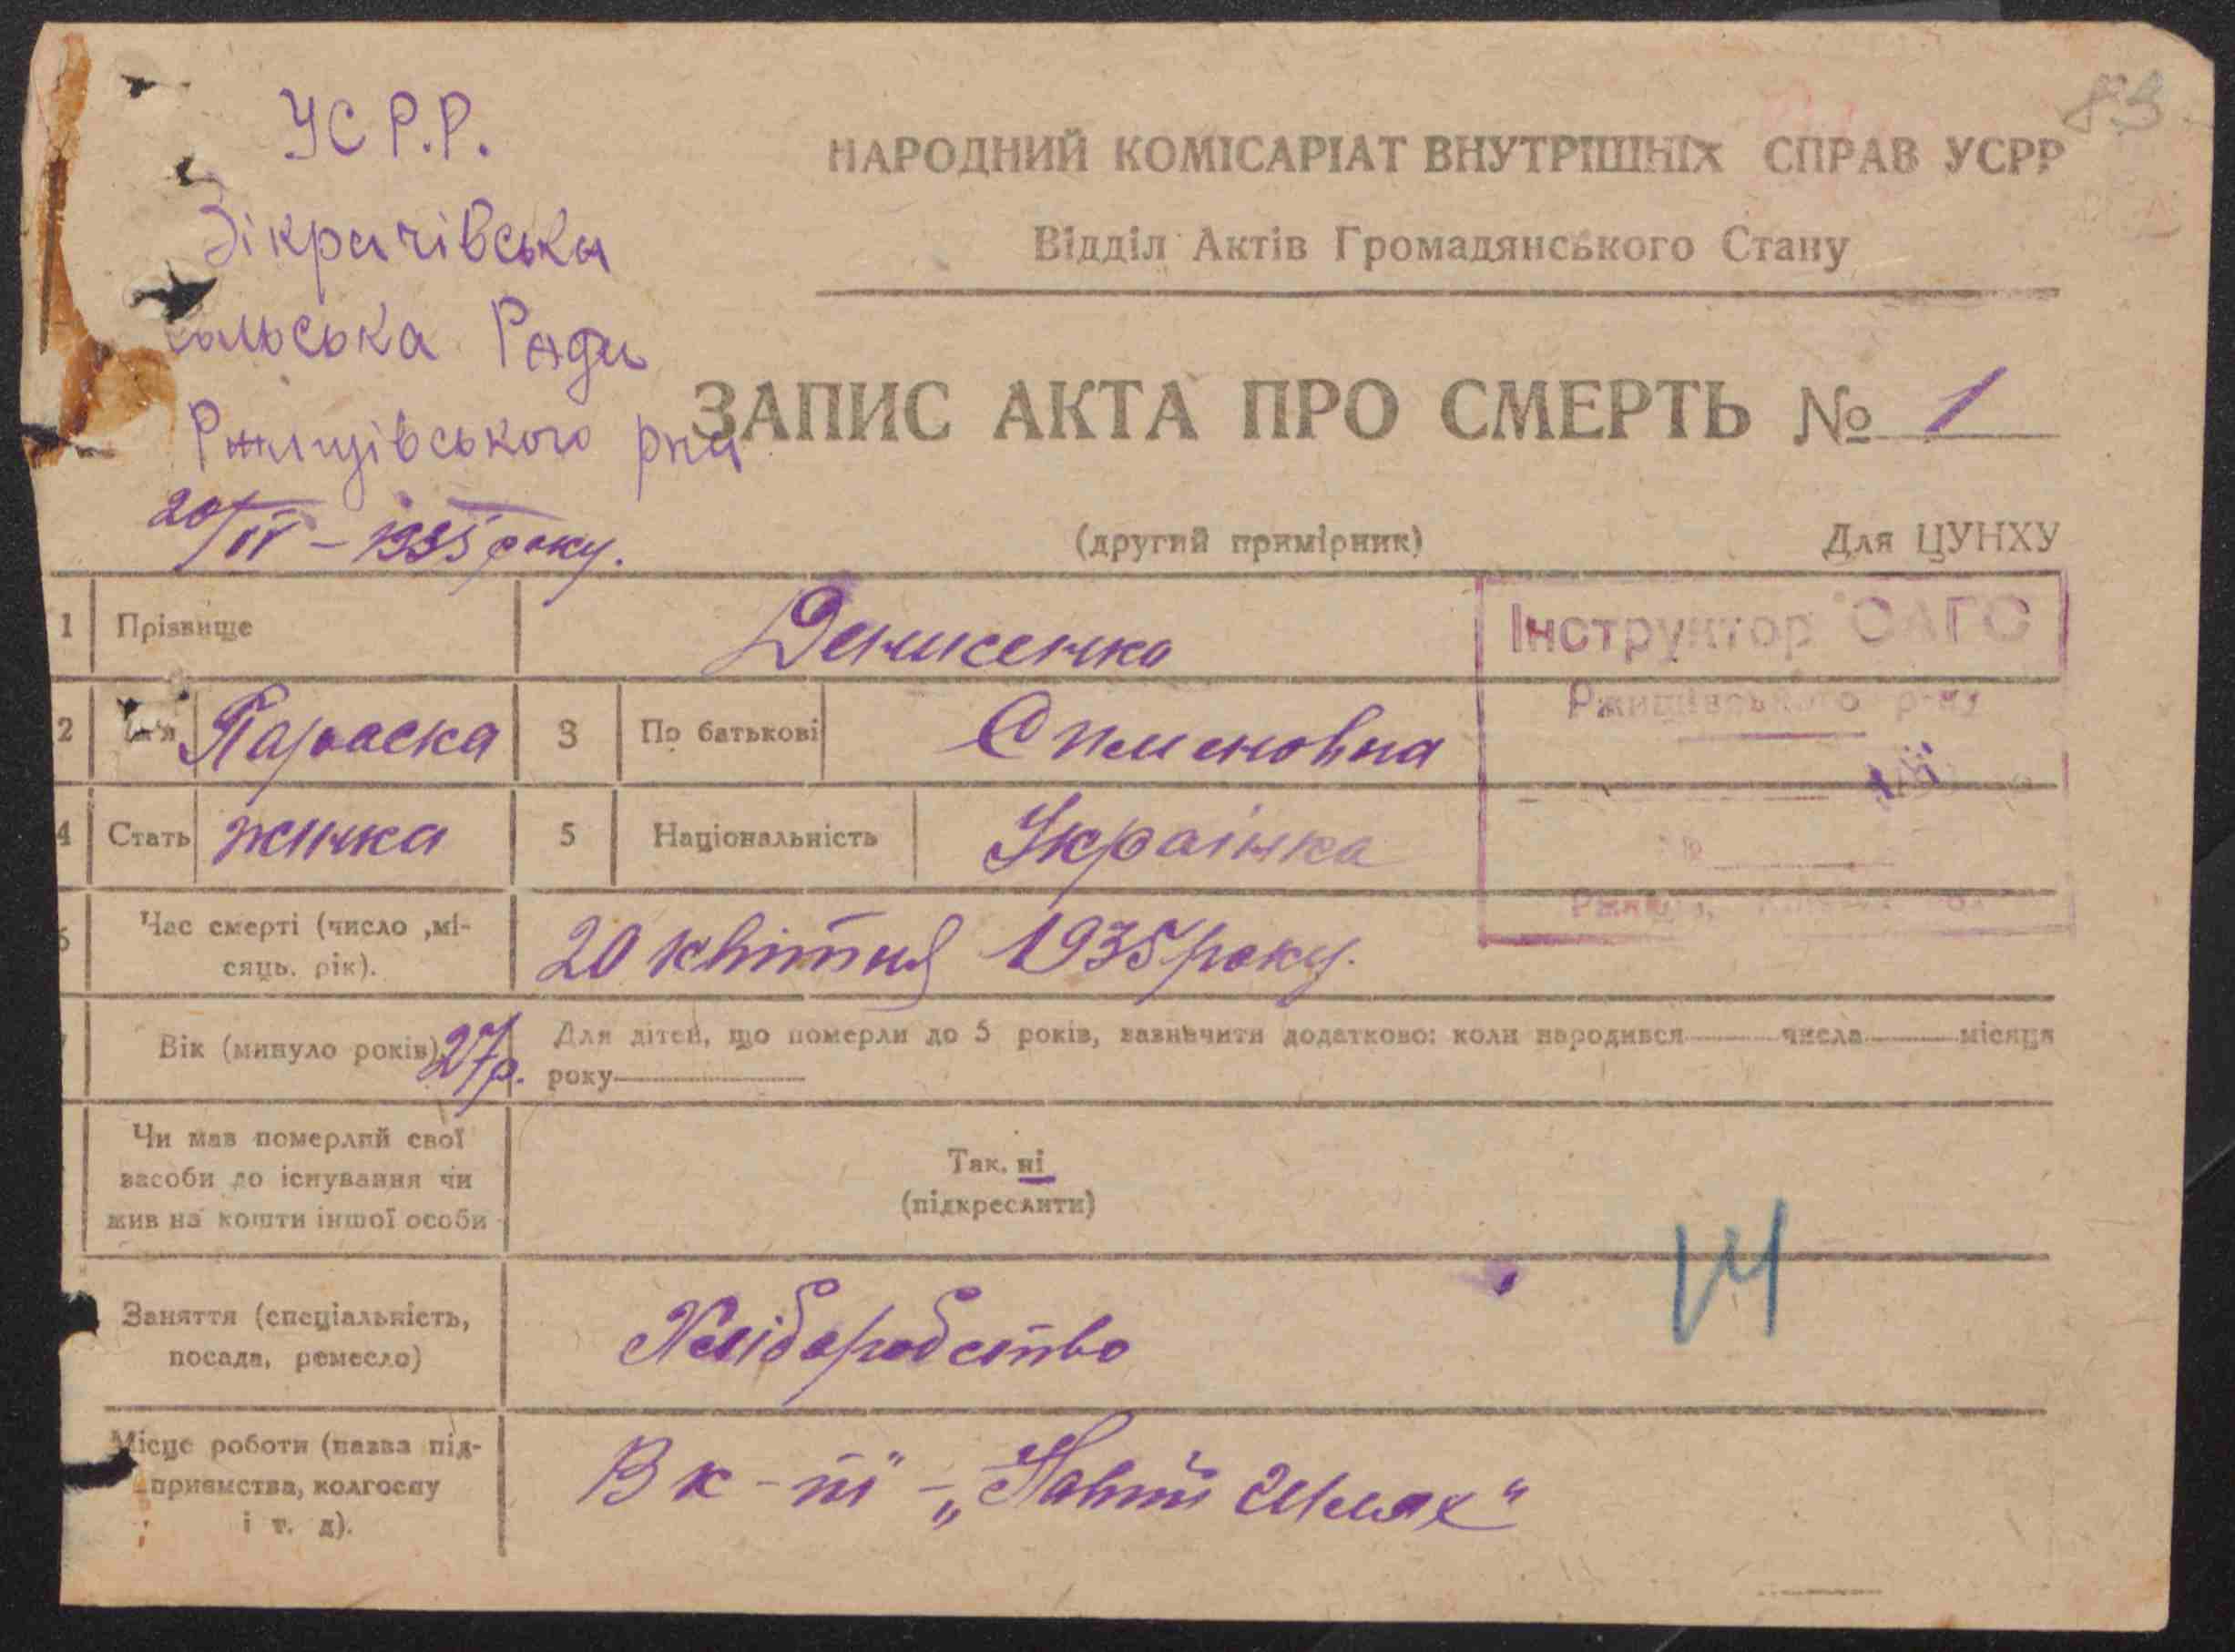 83
УС Р.Р.
Зікрачівська
сільська Рада
Ржищівського р-на
20/IV – 1935 року.
НАРОДНИЙ КОМІСАРІАТ ВНУТРІШНІХ СПРАВ УСРР
Відділ Актів Громадянського Стану
ЗАПИС АКТА ПРО СМЕРТЬ № 1
(другий примірник) Для ЦУНХУ
Інструктор ОАГС
Ржищівського р-ну
№
1 Прізвище Денисенко
2 Ім'я Параска 3 По батькові Сименовна
4 Стать жинка 5 Національність Украінка
Час смерті (число ,мі-
сяць. рік).
20 квітня 1935 року.
Вік (минуло років) 27 р.
Для дітей, що померли до 5 років, зазначити додатково: коли народився числа місяця
року
Чи мав померлий свої
засоби до існування чи
жив на кошти іншої особи
Так. ні
(підкреслити)
Заняття (спеціальність,
посада, ремесло)
Хліборобство
14
Місце роботи (назва під-
приємства, колгоспу
і т. д).
В к-пі – „Новий Шлях“